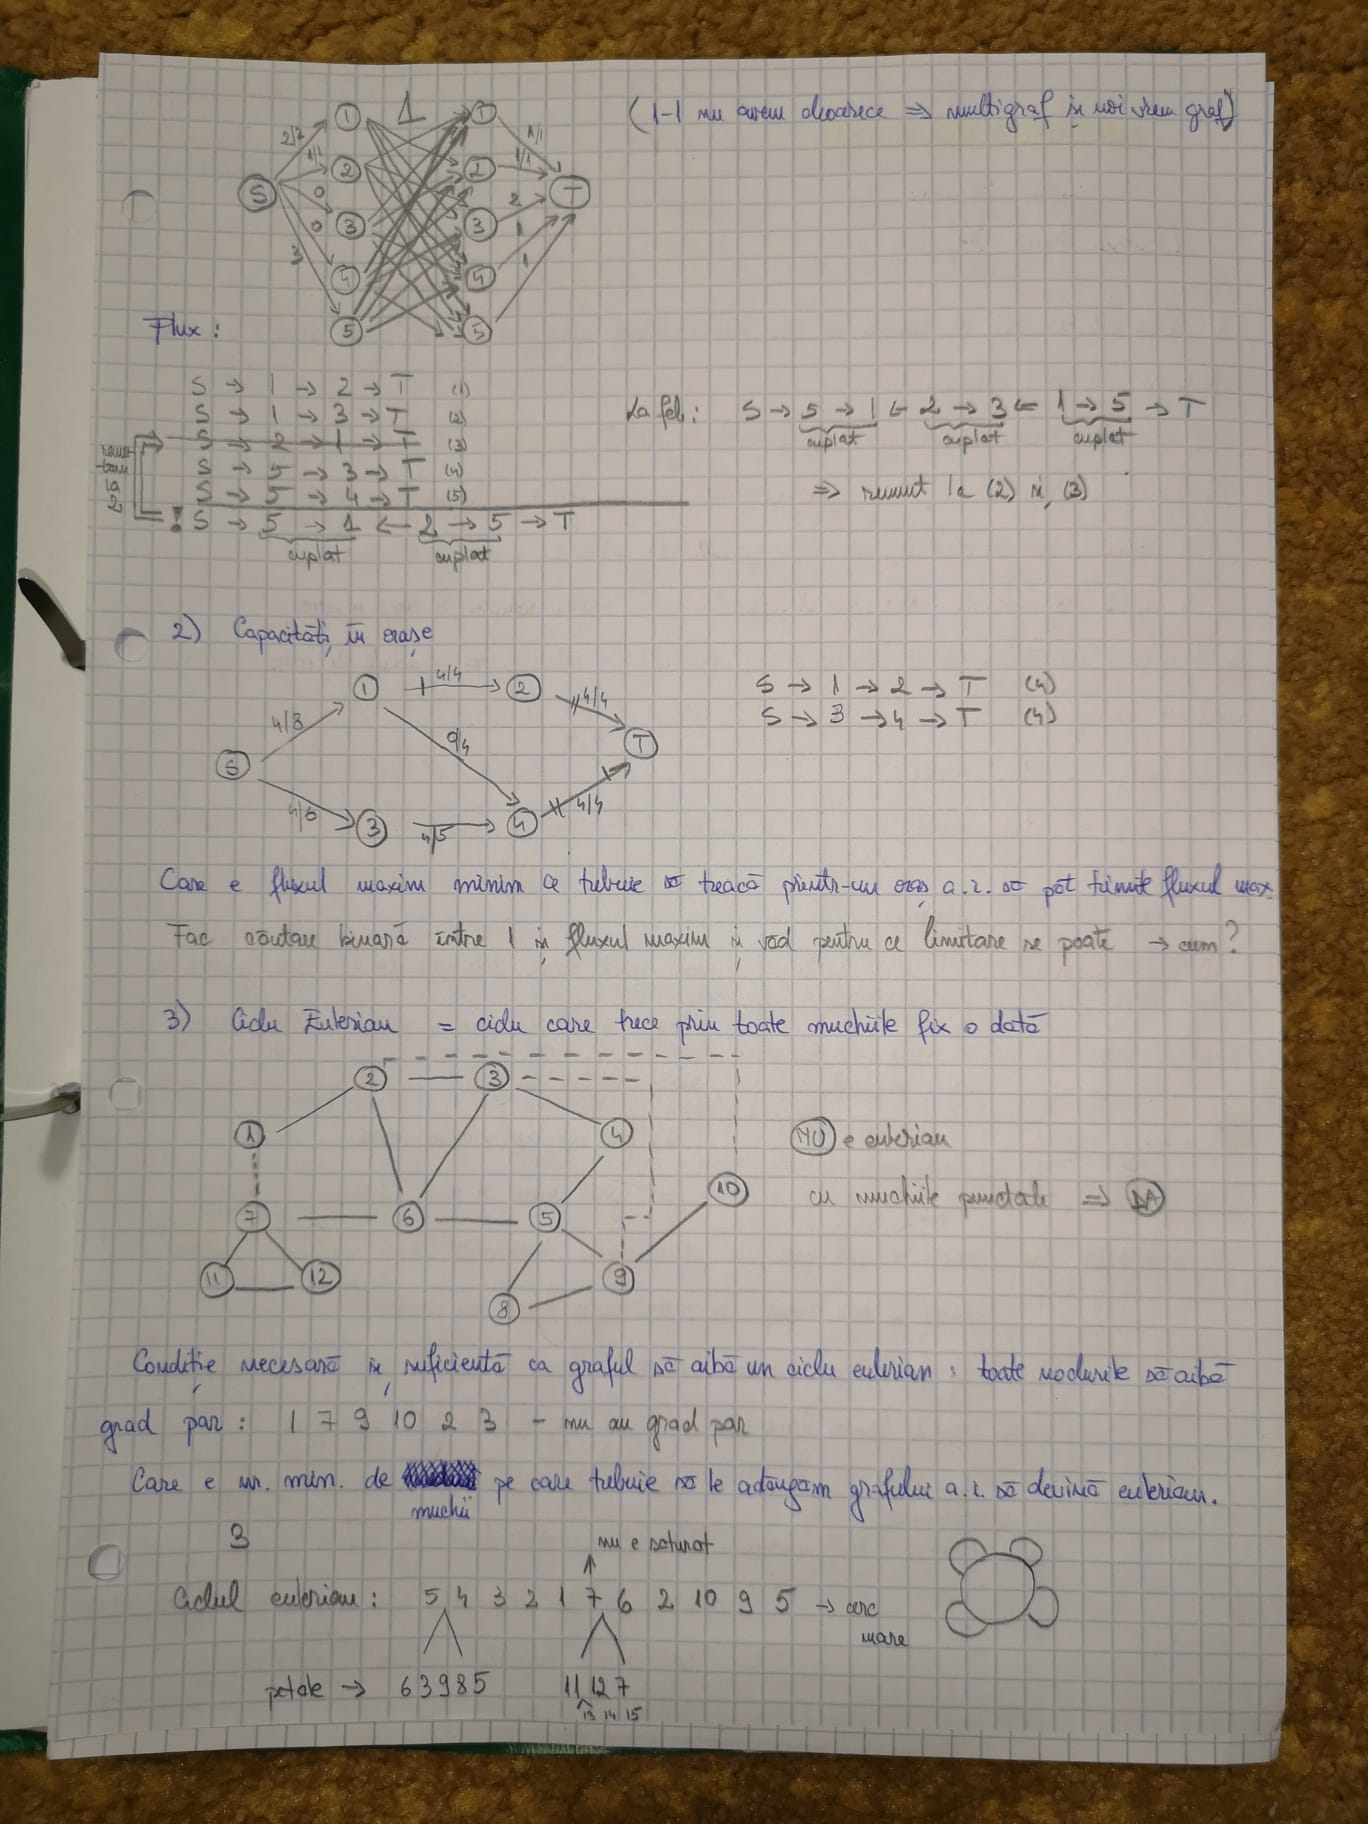 (1-1 nu avem deoarece ⇒ multigraf și noi vrem graf)
1
1 1
2 2
3 3
4 4
5 5
S T
2/2
1/1
0
0
3
1/1
1/1
2
1
1
Flux:
S → 1 → 2 → T (1)
S → 1 → 3 → T (2)
S → 2 → 1 → T (3)
S → 5 → 3 → T (4)
S → 5 → 4 → T (5)
! S → 5 → 1 ← 2 → 5 → T
cuplat cuplat
La fel: S → 5 → 1 ← 2 → 3 ← 1 → 5 → T
cuplat cuplat cuplat
⇒ renunț la (2) și (3)
2) Capacități în orașe
1 4/4 2 4/4
4/8 0/4 T
S
4/6 3 4/5 4 4/4
S → 1 → 2 → T (4)
S → 3 → 4 → T (4)
Care e fluxul maxim minim ce trebuie să treacă printr-un oraș a.î. să pot trimite fluxul max.
Fac căutare binară între 1 și fluxul maxim și văd pentru ce limitare se poate → cum?
3) Ciclu Eulerian = ciclu care trece prin toate muchiile fix o dată
2 3
1 4
10
7 6 5
11 12 9
8
NU e eulerian
cu muchiile punctate ⇒ DA
Condiție necesară și suficientă ca graful să aibă un ciclu eulerian: toate nodurile să aibă
grad par: 1 7 9 10 2 3 - nu au grad par
Care e nr. min. de pe care trebuie să le adăugăm grafului a.î. să devină eulerian.
muchii
3
nu e saturat
Ciclul eulerian: 5 4 3 2 1 7 6 2 10 9 5 → cerc
mare
petale → 6 3 9 8 5 11 12 7
13 14 15